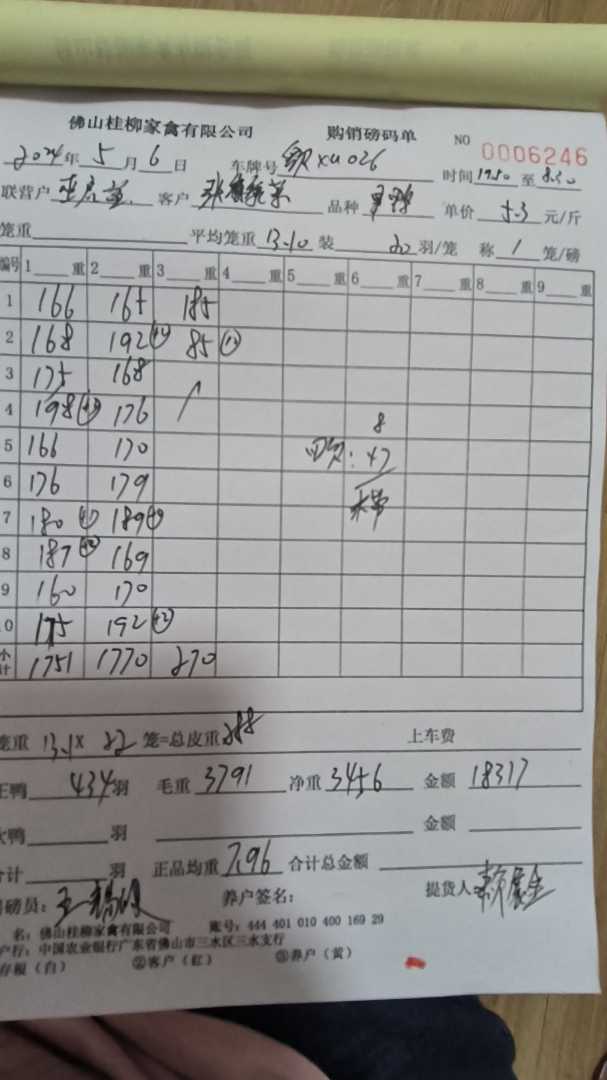 佛山桂柳家禽有限公司 购销磅码单 NO 0006246
2024年5月6日 车牌号 XU026 时间1950至8:30
联营户 客户 品种 单价5.3元/斤
笼重 平均笼重13.10 装22羽/笼 称1笼/磅
编号 1 重 2 重 3 重 4 重 5 重 6 重 7 重 8 重 9 重
1 166 165 185
2 168 192 85
3 175 168
4 198 176 8
5 166 170 : 47
6 176 179
7 180 189
8 187 169
9 160 170
10 175 192
小计 1751 1770 270
笼重 13.1 X 22 笼=总皮重 288 上车费
正鸭 434羽 毛重 3791 净重 3456 金额 18317
次鸭 羽 金额
合计 羽 正品均重 7.96 合计总金额
司磅员: 养户签名: 提货人:
名:佛山桂柳家禽有限公司 账号:444 401 010 400 169 29
户行:中国农业银行广东省佛山市三水区三水支行
存根(白) ②客户(红) ③养户(黄)